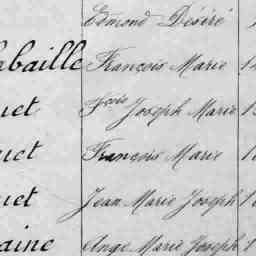 Edmond Désiré
abaille François Marie 1
uet Fois Joseph Marie 1
uet François Marie 1
uet Jean Marie Joseph 1
aine Ange Marie Joseph 1